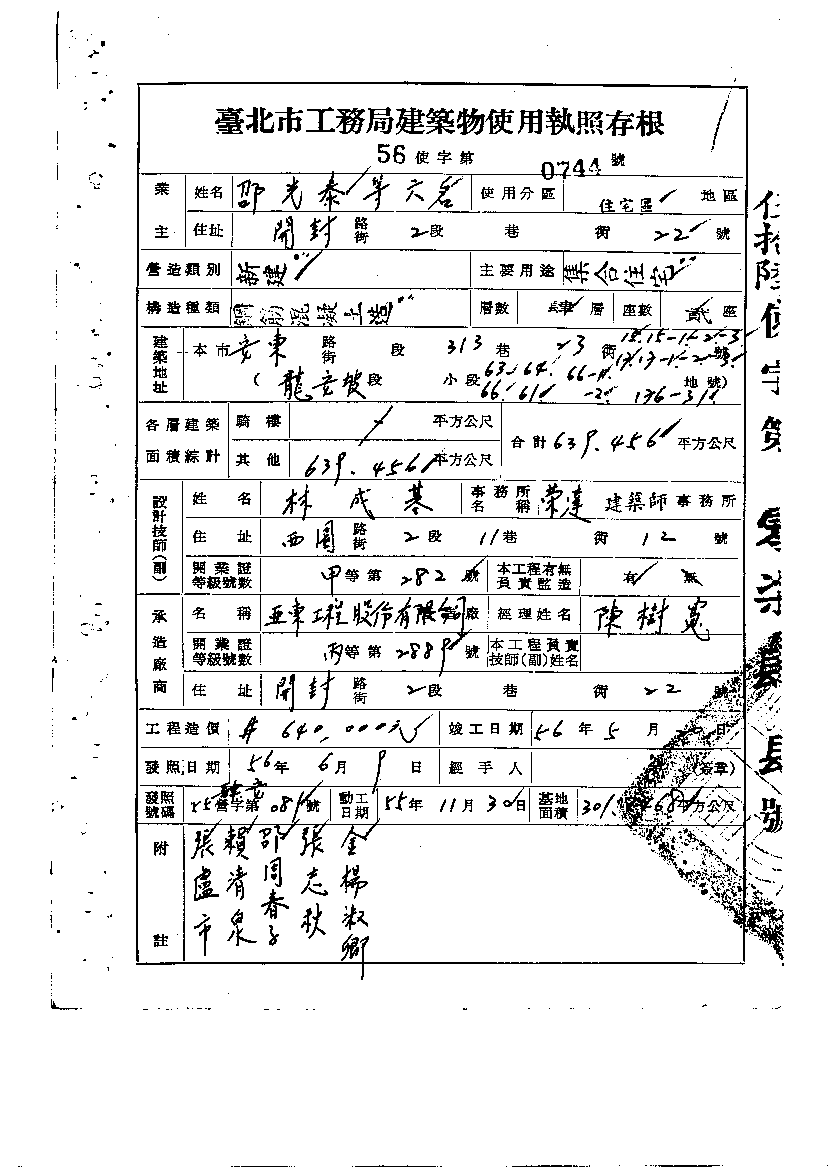 臺北市工務局建築物使用執照存根
56使字第0744號
業主 姓名 邵光泰等六名 使用分區 住宅區 地區
住址 開封 路街 2段 巷 街 22號
營造類別 新建 主要用途 集合住宅
構造種類 鋼筋混凝土造 層數 層 座數 貳座
建築地址 本市安東 路街 段 313巷 23街 13.15-1-2-3號
17.17-1-2-3
(龍安坡段 小段 63. 64. 66-11 地號)
66. 61. -2. 136-31
各層建築面積綜計 騎樓 平方公尺 合計639.456平方公尺
其他 639.456平方公尺
設計技師(副) 姓名 林成基 事務所名稱 榮達建築師事務所
住址 西園 路街 2段 11巷 街 12號
開業證等級號數 甲等第282號 本工程有無負責監造 有 無
承造廠商 名稱 亞東工程股份有限公司 廠 經理姓名 陳樹寬
開業證等級號數 丙等第2889號 本工程負責技師(副)姓名
住址 開封 路街 2段 巷 街 22號
工程造價 $640,000元 竣工日期 56年5月 日
發照日期 56年6月9日 經手人 (簽章)
發照號碼 55營字第081號 動工日期 55年11月30日 基地面積 301. 468平方公尺
附註
金楊淑卿
張志秋
邵周春子
賴清泉
張盧市
伍拾陸使字第零柒肆肆號